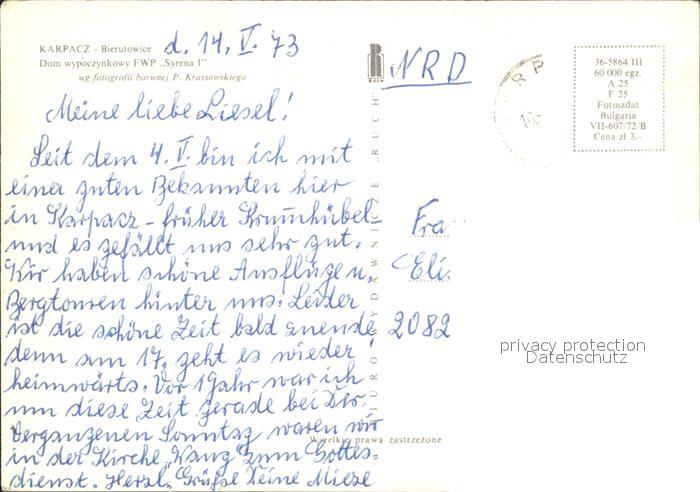 KARPACZ – Bierutowice
Dom wypoczynkowy FWP „Syrena I"
wg fotografii barwnej P. Krassowskiego
d. 14. V. 73
Meine liebe Liesel!
Seit dem 4. V. bin ich mit
einer guten Bekannten hier
in Karpacz – früher Krummhübel –
und es gefällt uns sehr gut.
Wir haben schöne Ausflüge u.
Bergtouren hinter uns. Leider
ist die schöne Zeit bald zuende,
denn am 17. geht es wieder
heimwärts. Vor 1 Jahr war ich
um diese Zeit gerade bei Dir.
Vergangenen Sonntag waren wir
in der Kirche „Wang" zum Gottes=
dienst. Herzl. Grüße Deine Miese
BIURO WYDAWNICZE „RUCH"
RUCH
NRD
RP
36-5864/III
60 000 egz.
A 25
F 25
Fotoizdat
Bulgaria
VII-607/72/B
Cena zł 3.–
Fra
Eli
2082
privacy protection
Datenschutz
Wszelkie prawa zastrzeżone